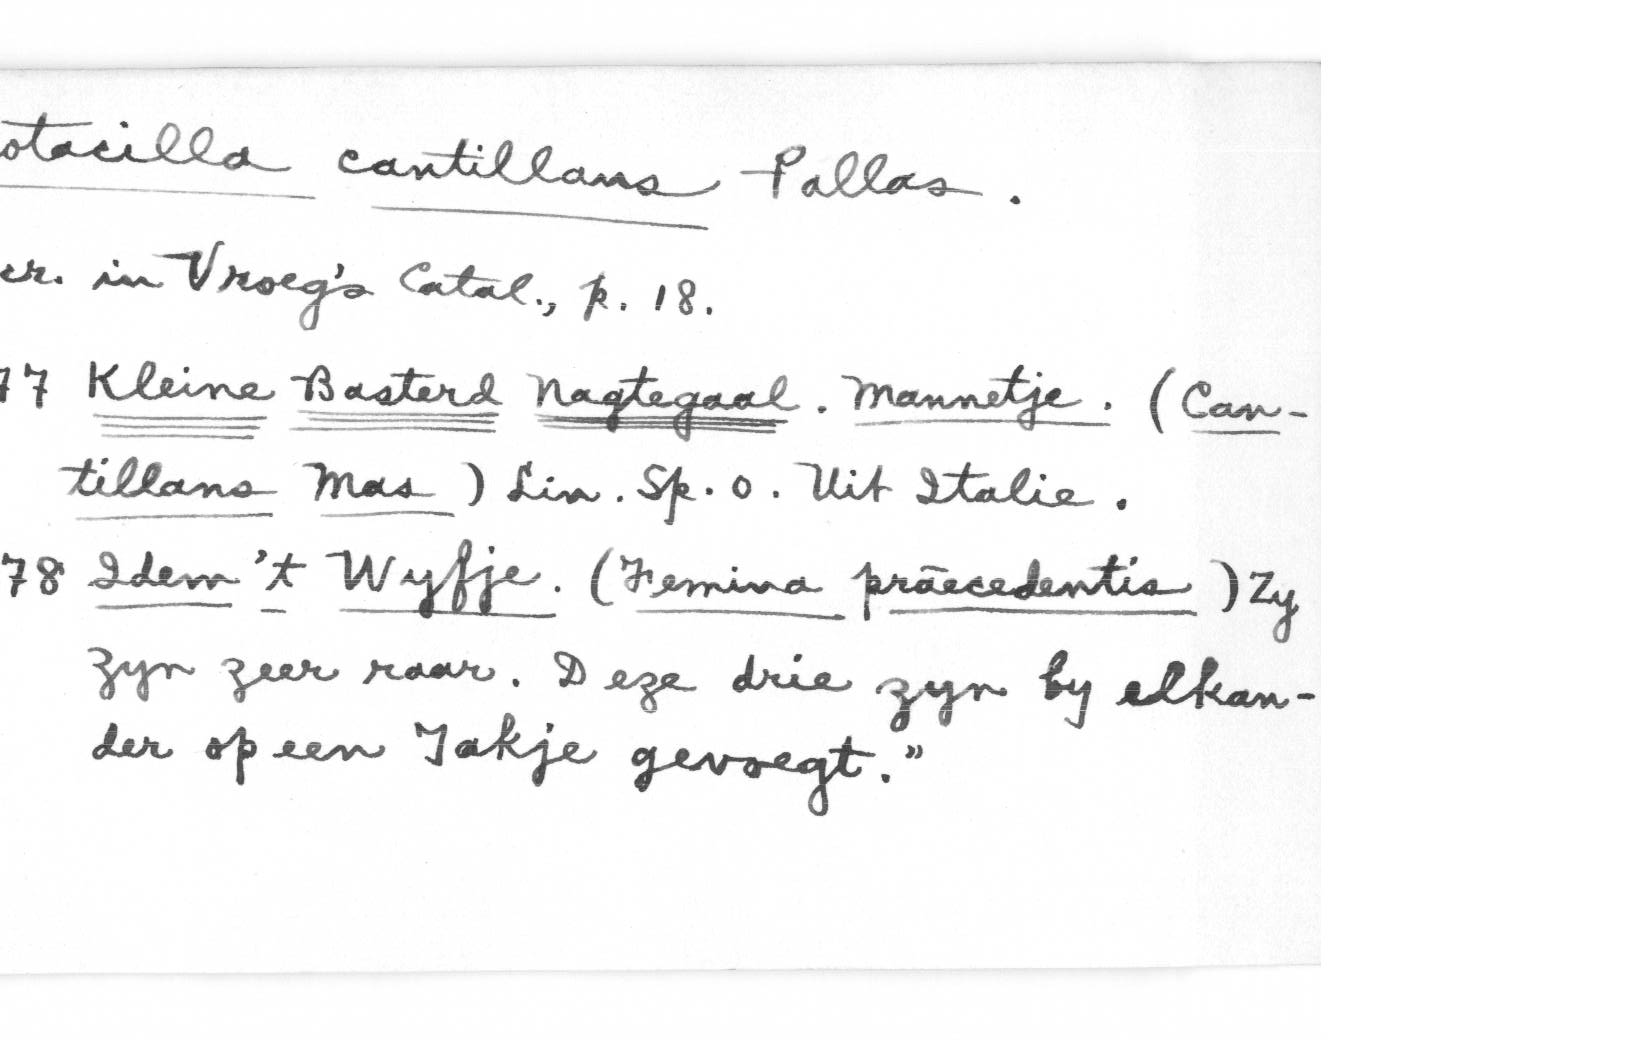 otacilla cantillans Pallas.
cr. in Vroeg's Catal., p. 18.
77 Kleine Basterd Nagtegaal. Mannetje. (Can-
tillans Mas) Lin. Sp. 0. Uit Italie.
78 Idem 't Wyfje. (Femina præcedentis) Zy
zyn zeer raar. Deze drie zyn by elkan-
der op een Takje gevoegt."